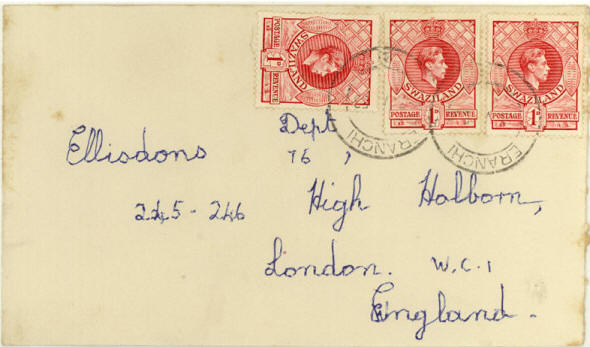 SWAZILAND
POSTAGE 1D REVENUE
SWAZILAND
POSTAGE 1D REVENUE
SWAZILAND
POSTAGE 1D REVENUE
ERANCHI
ERANCHI
Ellisdons Dept 76,
245-246 High Holborn,
London. W.C.1
England.